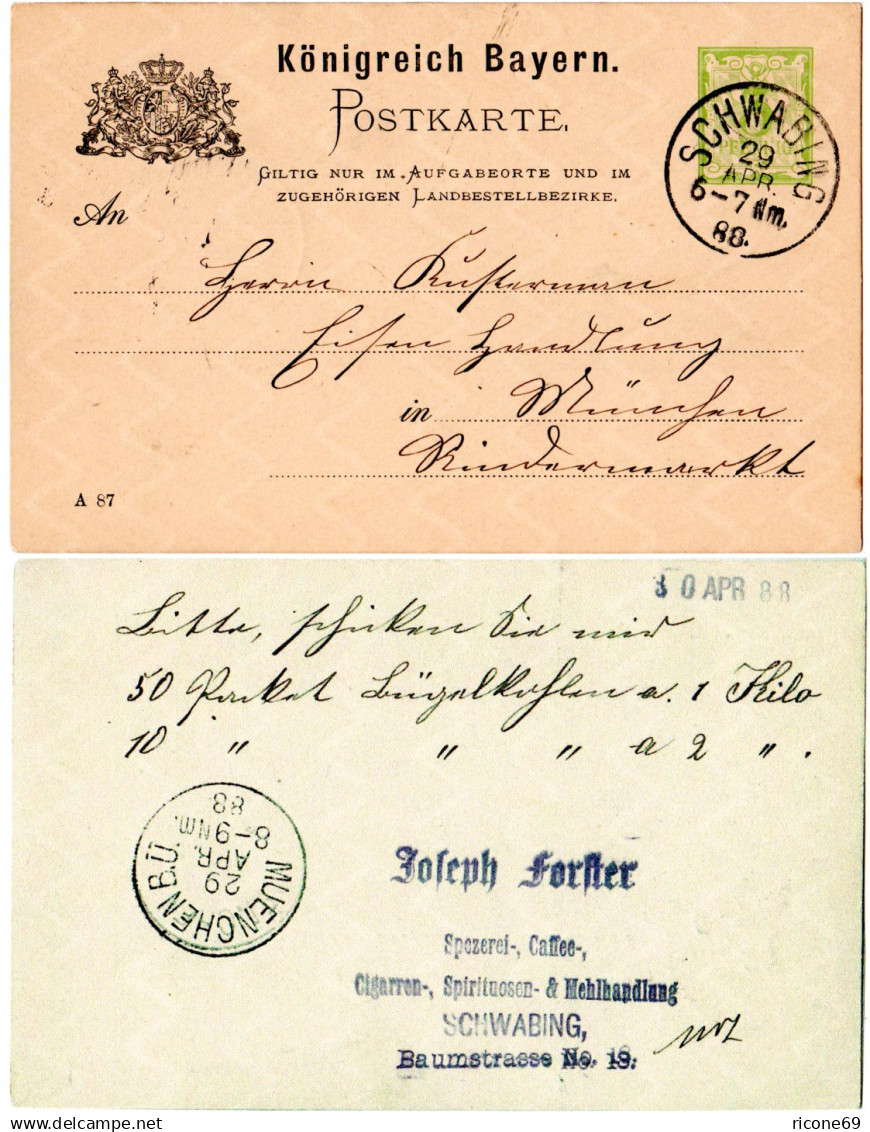 Königreich Bayern.
POSTKARTE.
GILTIG NUR IM AUFGABEORTE UND IM
ZUGEHÖRIGEN LANDBESTELLBEZIRKE.
SCHWABING
29
APR.
6-7 Nm.
88.
An
Herrn Kusterman
Eisen Handlung
in München
Rindermarkt
A 87
30 APR 88
Bitte, schicken Sie mir
50 Packet Bügelkohlen a. 1 Kilo
10 " " " a 2 " .
MUENCHEN B.Ü.
29
APR.
8-9 NM.
88
Joseph Forster
Spezerei-, Caffee-,
Cigarren-, Spirituosen- & Mehlhandlung
SCHWABING,
Baumstrasse No. 18.
delcampe.net
ricone69